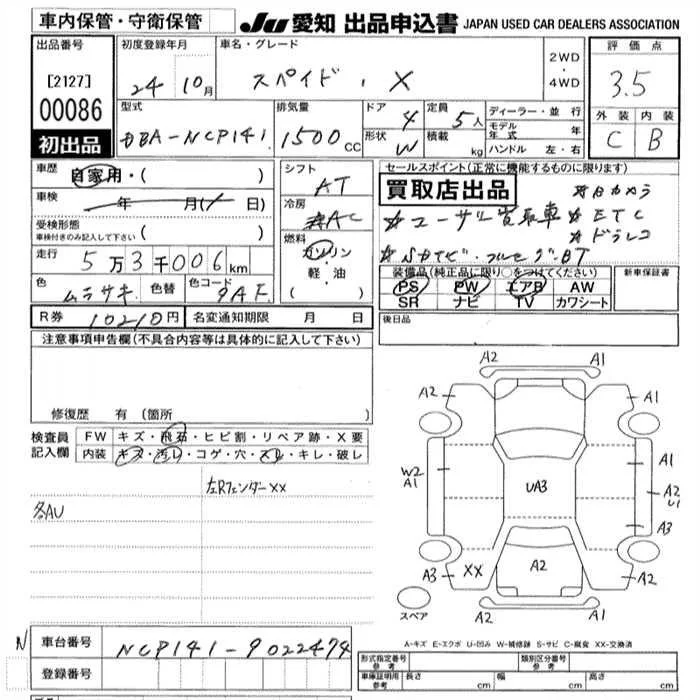 車内保管・守衛保管
JU 愛知 出品申込書 JAPAN USED CAR DEALERS ASSOCIATION
出品番号
[2127]
00086
初出品
初度登録年月
24年10月
車名・グレード
スペイド ・ X
2WD
・
4WD
評価点
3.5
外装 内装
C B
型式
DBA-NCP141
排気量
1500CC
ドア
4
形状 W
定員
5人
積載 kg
ディーラー・並 行
モデル年式 年
ハンドル 左・右
車歴 自家用・( )
車検 年 月( 日)
受検形態
車検付きのみ記入して下さい ( )
走行 5万3千006km
色 ムラサキ 色替 色コード 9AF
シフト
AT
冷房
AC
燃料
ガソリン
軽・油
( )
セールスポイント(正常に機能するものに限ります)
買取店出品
☆Bカメラ
☆ユーザー買取車 ☆ETC
☆ドラレコ
☆SDナビ・フルセグ・BT
装備品(純正品に限り○をつけてください)
PS PW エアB AW
SR ナビ TV カワシート
新車保証書
後日品
R券 10210円 名変通知期限 月 日
注意事項申告欄(不具合内容等は具体的に記入して下さい)
修復歴 有 (箇所
検査員
記入欄
FW キズ・飛石・ヒビ割・リペア跡・X要
内装 キズ・汚レ・コゲ・穴・スレ・キレ・破レ
左RフェンダーXX
各AU
A2 A1
A2 A1
W2
A1
A1
UA3
A2
U1
A3
A3 XX A2 A1
スペア
A2 A1
A-キズ E-エクボ U-凹み W-補修跡 S-サビ C-腐食 XX-交換済
N 車台番号 NCP141-9022474
登録番号
形式指定番号
参考
類別区分番号
参考
車庫証明用
参考
長さ cm 幅 cm 高さ cm